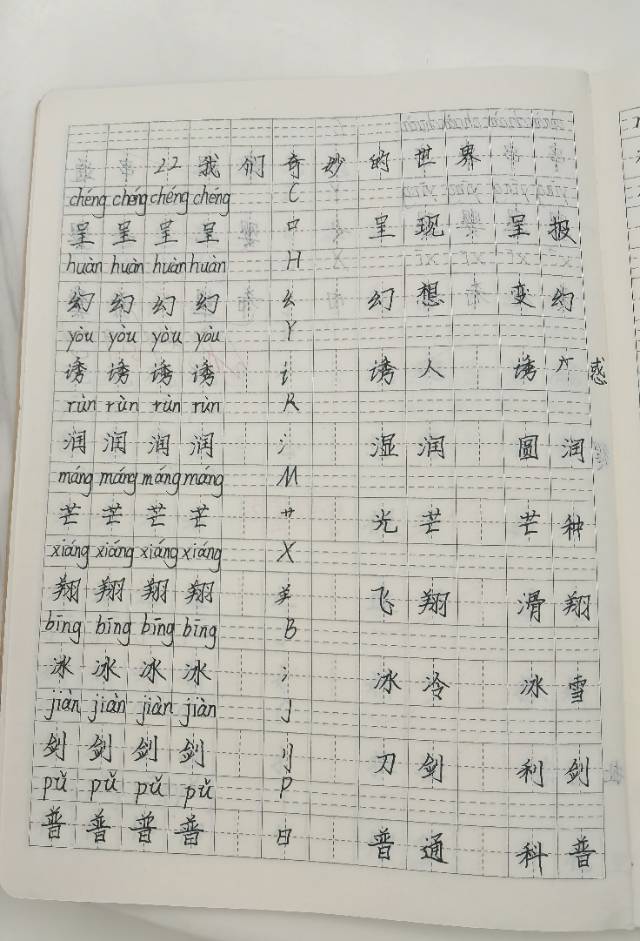 22 我们奇妙的世界
chéng chéng chéng chéng C
呈 呈 呈 呈 口 呈现 呈报
huàn huàn huàn huàn H
幻 幻 幻 幻 幺 幻想 变幻
yòu yòu yòu yòu Y
诱 诱 诱 诱 讠 诱人 诱 感
rùn rùn rùn rùn R
润 润 润 润 氵 湿润 圆润
máng máng máng máng M
芒 芒 芒 芒 艹 光芒 芒种
xiáng xiáng xiáng xiáng X
翔 翔 翔 翔 羊 飞翔 滑翔
bīng bīng bīng bīng B
冰 冰 冰 冰 冫 冰冷 冰雪
jiàn jiàn jiàn jiàn J
剑 剑 剑 剑 刂 刀剑 利剑
pǔ pǔ pǔ pǔ P
普 普 普 普 日 普通 科普